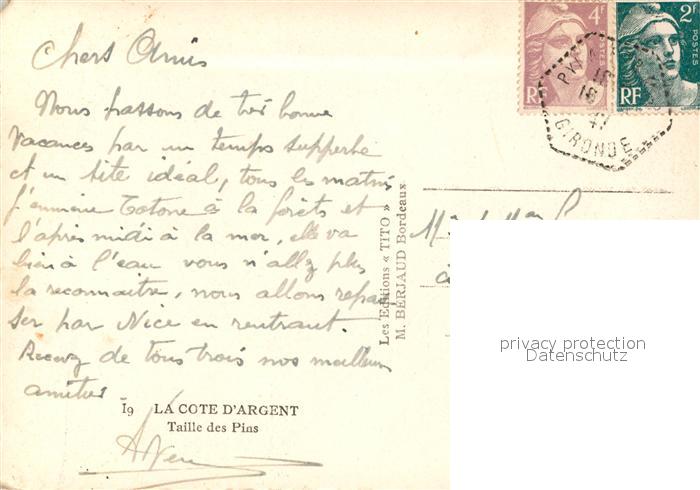 Chers Amis
Nous passons de très bonne
vacances par un temps supperbe
et un site idéal, tous les matin
j'emmène Totone à la forêts et
l'après midi à la mer, elle va
bien à l'eau vous n'allez plus
la reconnaitre, nous allons repas
ser par Nice en rentrant.
Recevez de tous trois nos meilleurs
amitiés
19 LA COTE D'ARGENT
Taille des Pins
Les Editions « TITO »
M. BERJAUD Bordeaux
4F
RF
2F
POSTES
RF
18
47
GIRONDE
privacy protection
Datenschutz